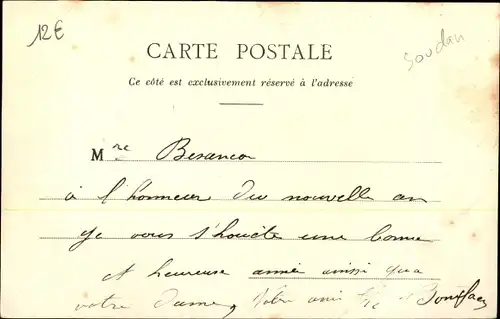 12€
Soudan
CARTE POSTALE
Ce côté est exclusivement réservé à l'adresse
Mre Besancon
à l'honneur du nouvelle an
je vous s'houcite une bonne
et heureuse année ainssi qua
votre dame, Votre ami Boniface